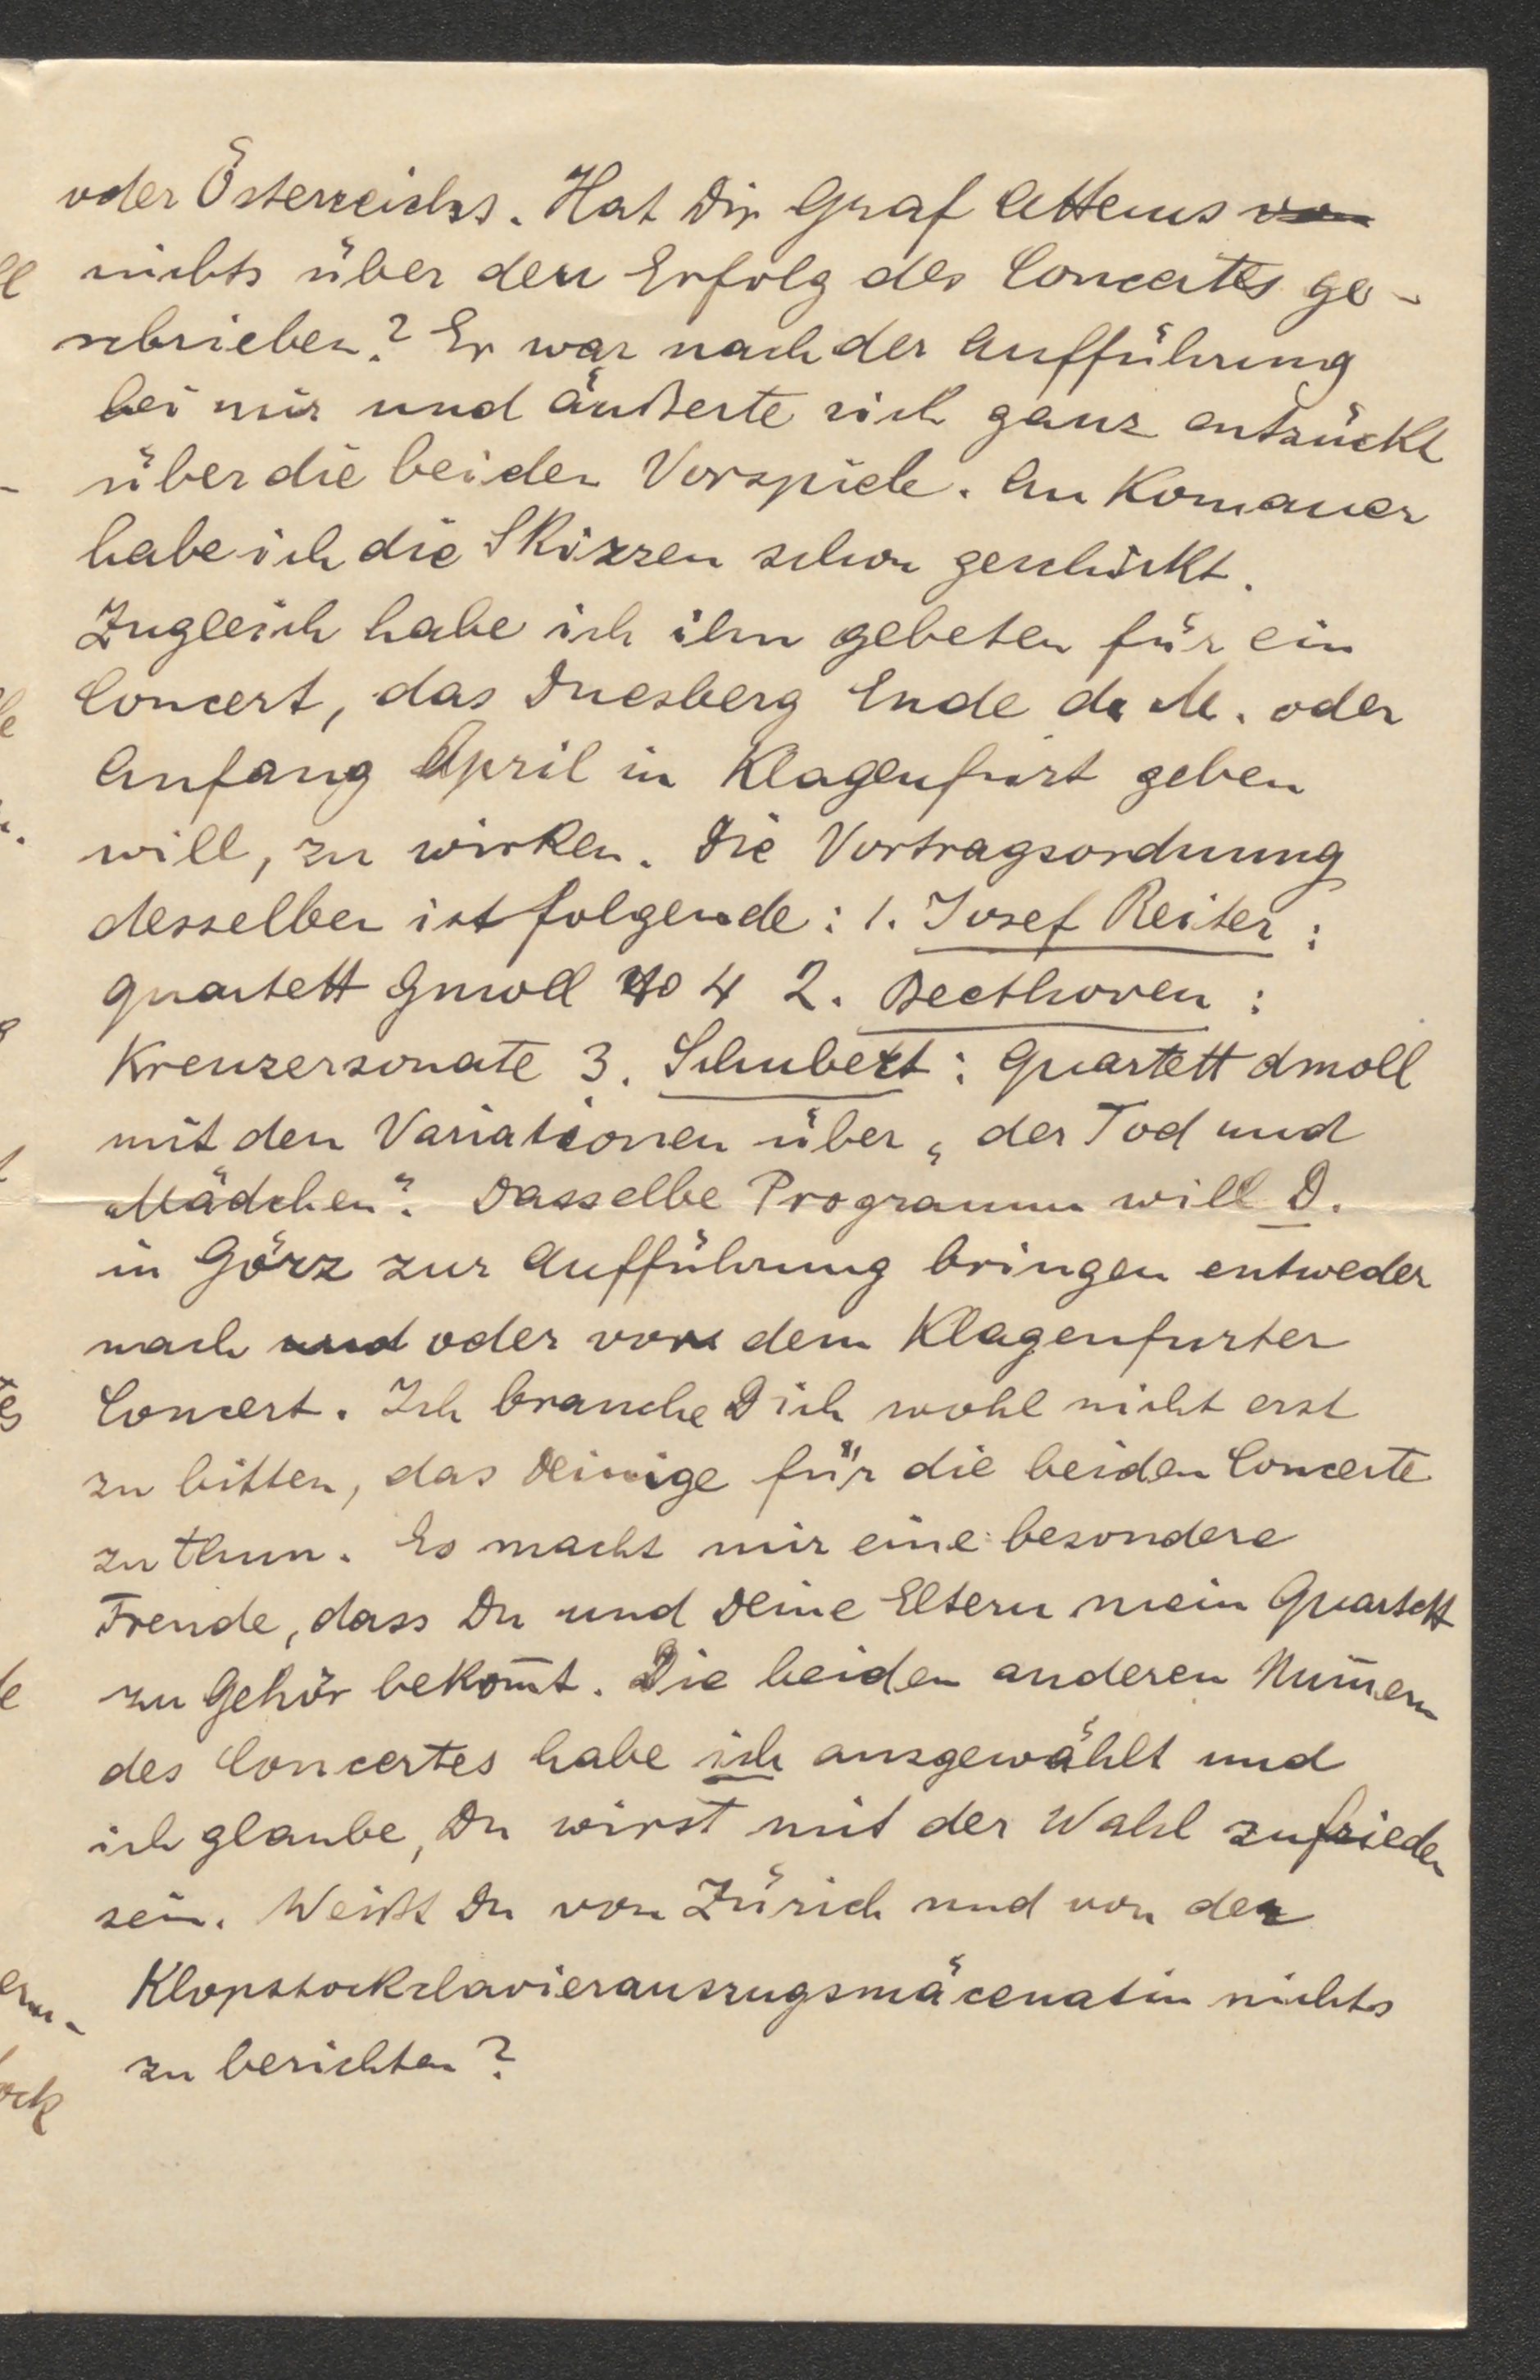 oder Österreichs. Hat Dir Graf Attems von
nichts über den Erfolg des Concertes ge-
schrieben? Er war nach der Aufführung
bei mir und äußerte sich ganz entzückt
über die beiden Vorspiele. An Komauer
habe ich die Skizzen schon geschickt.
Zugleich habe ich ihn gebeten für ein
Concert, das Duesberg Ende d. M. oder
Anfang April in Klagenfurt geben
will, zu wirken. Die Vortragsordnung
desselben ist folgende: 1. Josef Reiter:
Quartett Gmoll No 4 2. Beethoven:
Kreuzersonate 3. Schubert: Quartett dmoll
mit den Variationen über „der Tod und
Mädchen“. Dasselbe Programm will D.
in Görz zur Aufführung bringen entweder
nach und oder vor dem Klagenfurter
Concert. Ich brauche Dich wohl nicht erst
zu bitten, das Deinige für die beiden Concerte
zu thun. Es macht mir eine besondere
Freude, dass Du und Deine Eltern mein Quartett
zu Gehör bekom̄t. Die beiden anderen Num̄ern
des Concertes habe ich ausgewählt und
ich glaube, Du wirst mit der Wahl zufrieden
sein. Weißt Du von Zürich und von der
Klopstockclavierauszugsmäcenatin nichts
zu berichten?